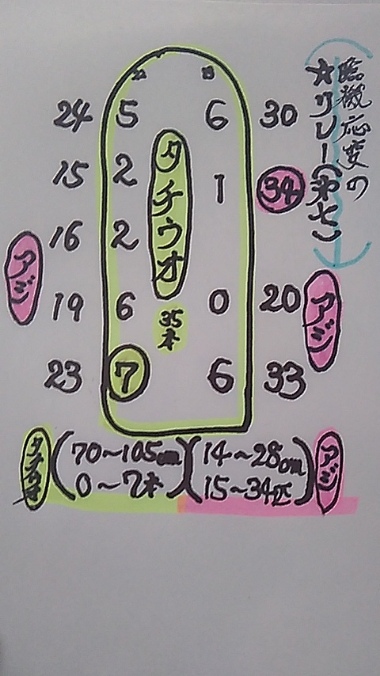 臨機応変の
☆リレー(弟七)
24 5 6 30
15 2 1 34
16 2
19 6 0 20
23 7 6 33
タチウオ
35本
アジ
アジ
タチウオ (70～105cm
0～7本)
(14～28cm
15～34匹) アジ